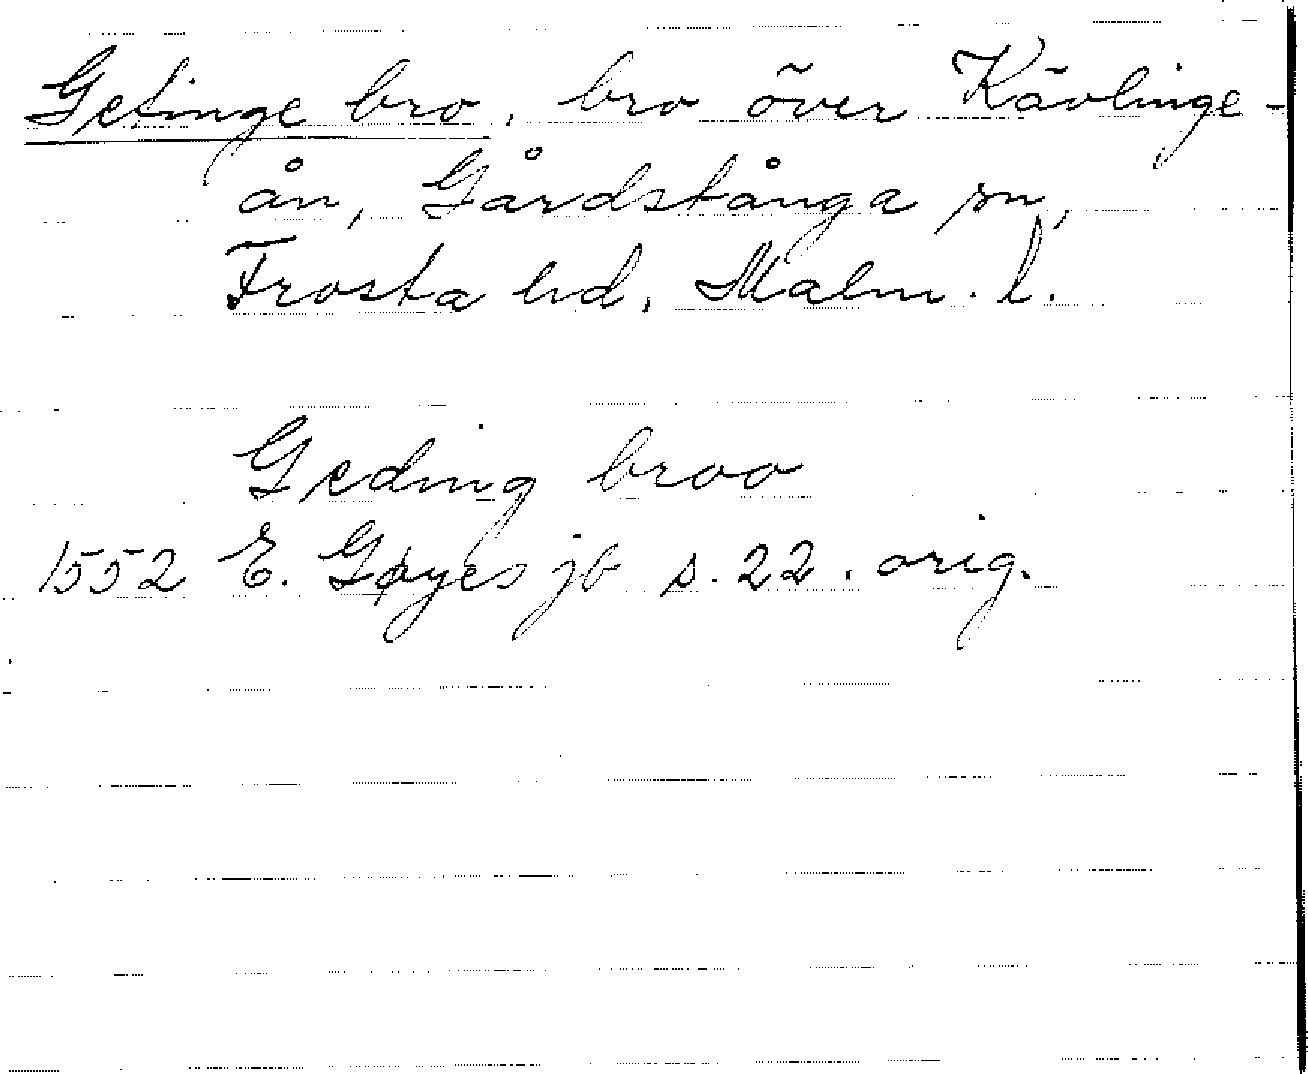 Getinge bro, bro över Kävlinge-
ån, Gårdstånga sn,
Frosta hd, Malm. l.
Geding broo
1552 E. Gøyes jb s. 22. orig.